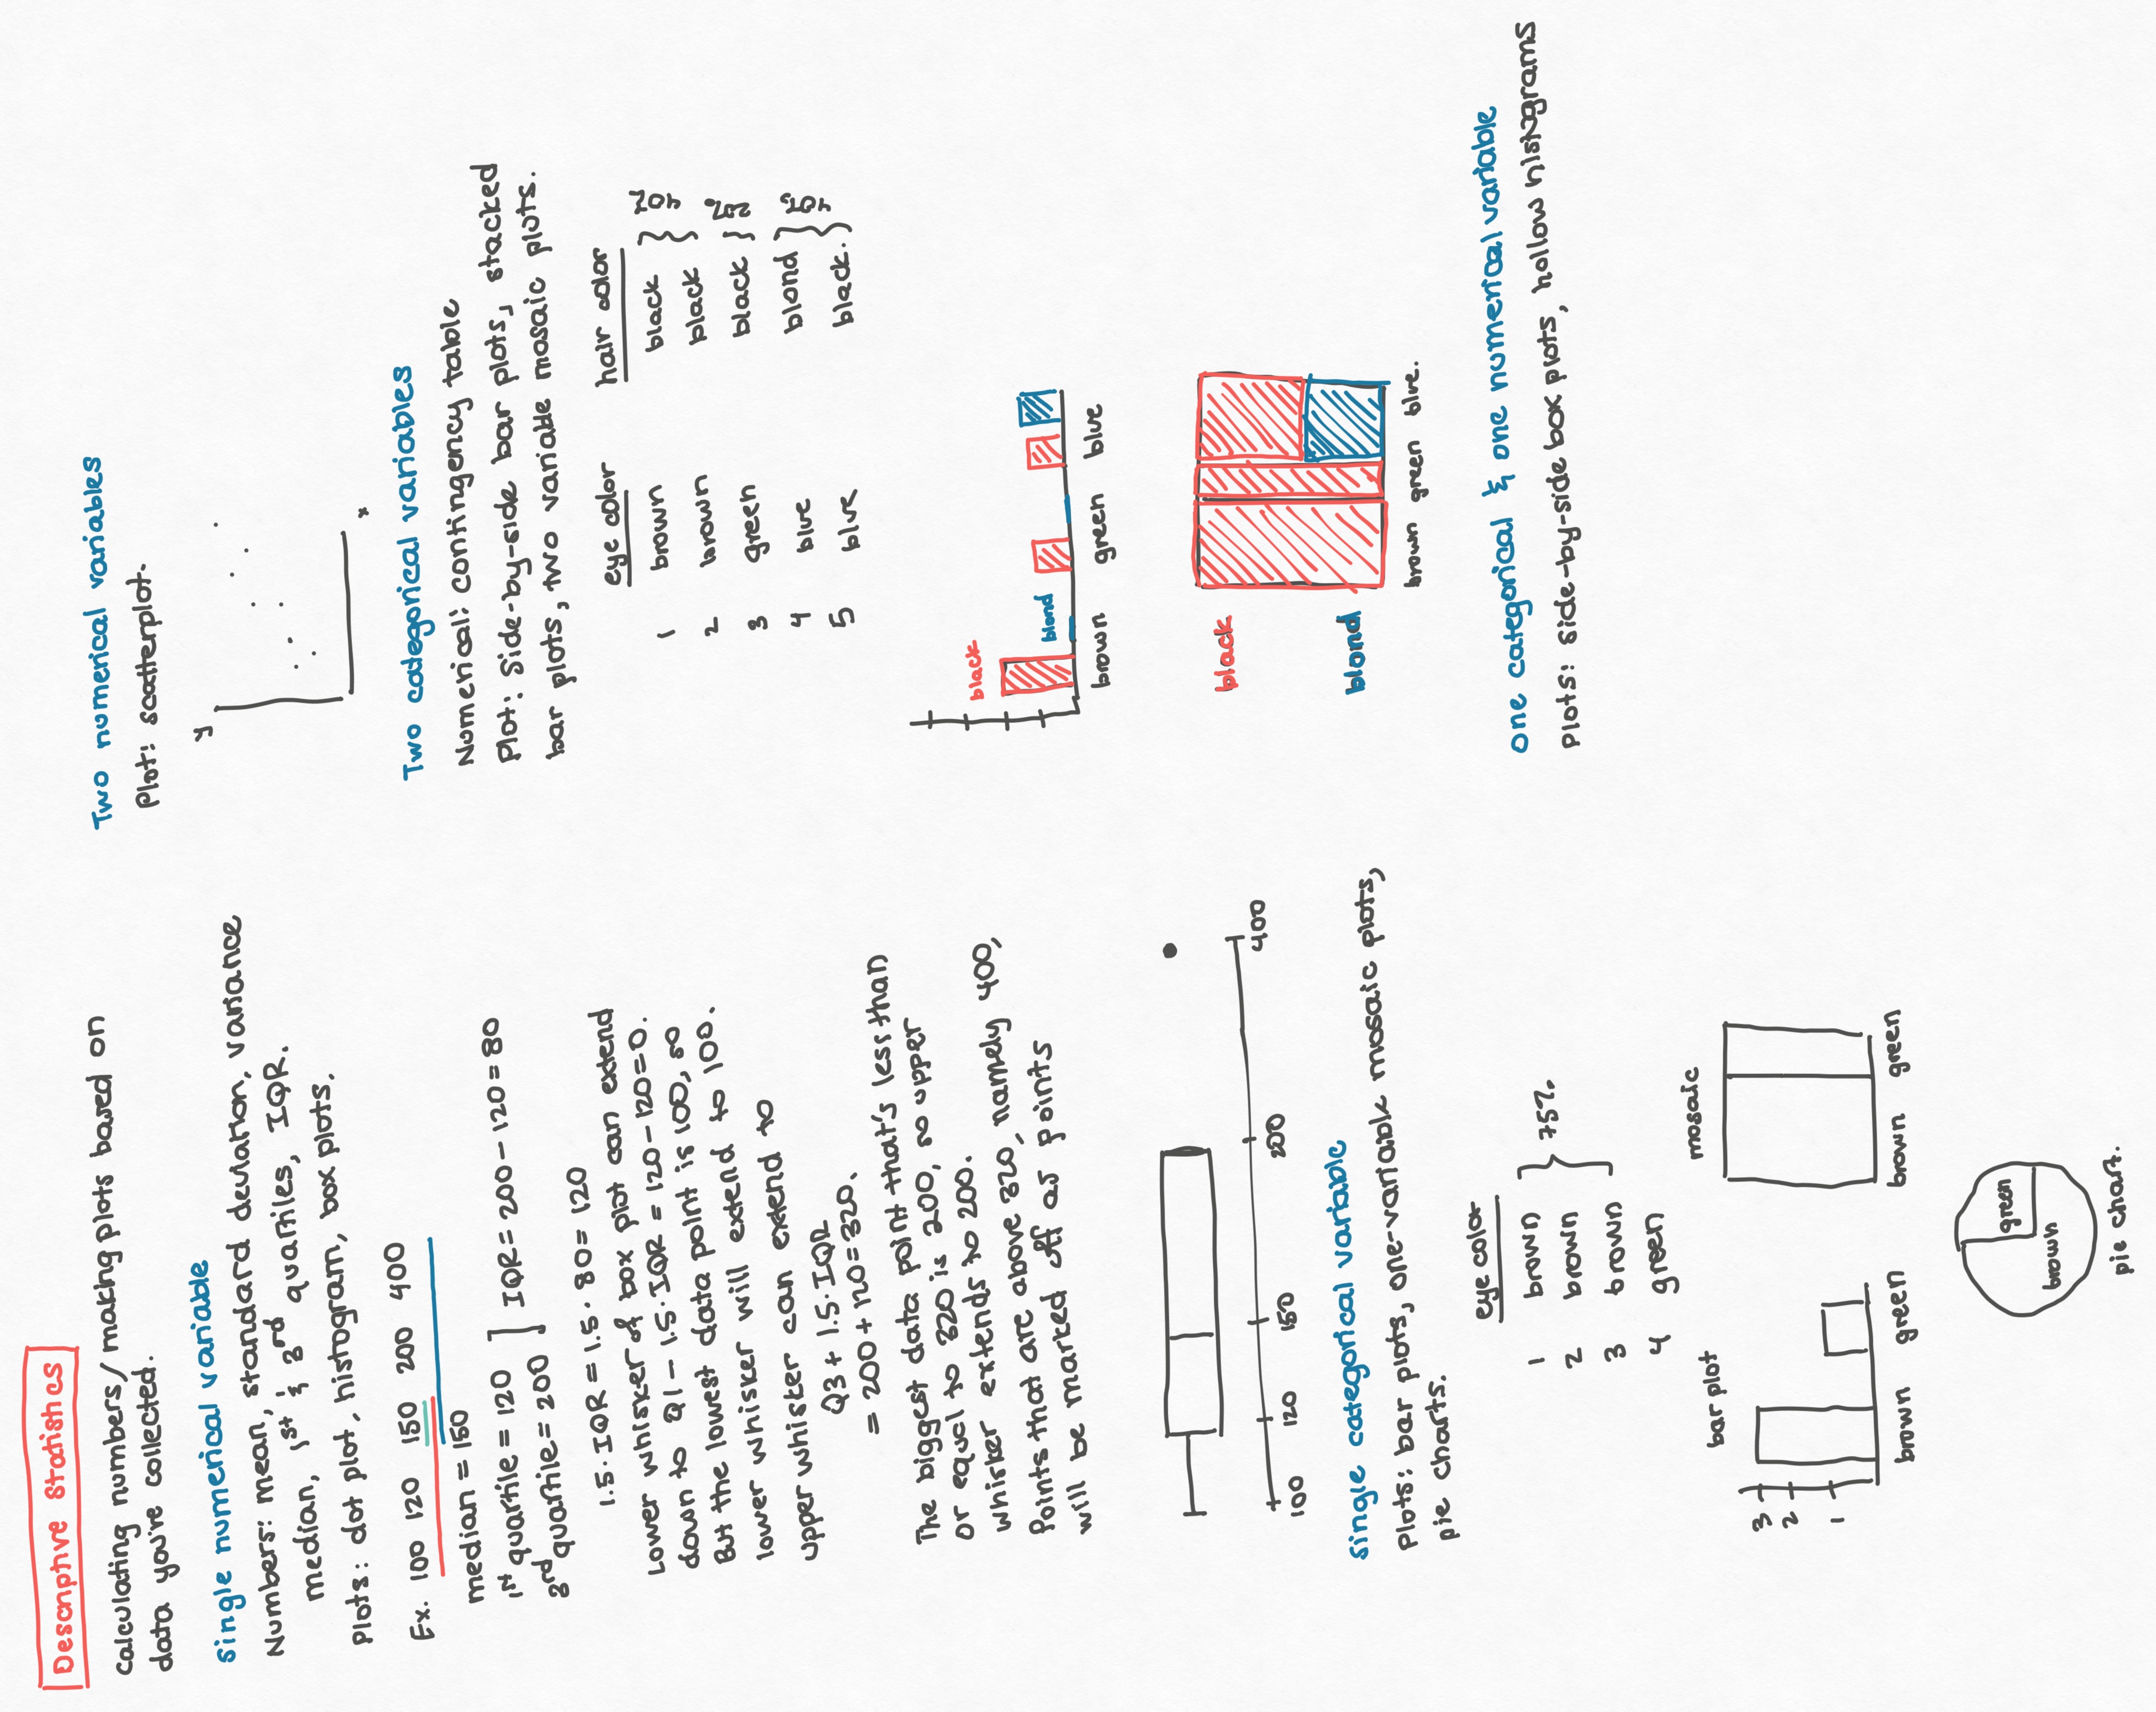 Descriptive Statistics
Calculating numbers/making plots based on
data you're collected.
Single numerical variable
Numbers: mean, standard deviation, variance
median, 1st & 3rd quartiles, IQR.
Plots: dot plot, histogram, box plots.
Ex. 100 120 150 200 400
median = 150
1st quartile = 120
3rd quartile = 200
IQR = 200 - 120 = 80
1.5 · IQR = 1.5 · 80 = 120
Lower whisker of box plot can extend
down to Q1 - 1.5 · IQR = 120 - 120 = 0.
But the lowest data point is 100, so
lower whisker will extend to 100.
Upper whisker can extend to
Q3 + 1.5 · IQR
= 200 + 120 = 320.
The biggest data point that's less than
or equal to 320 is 200, so upper
whisker extends to 200.
Points that are above 320, namely 400,
will be marked off as points
100 120 150 200 400
Single categorical variable
Plots: bar plots, one-variable mosaic plots,
pie charts.
eye color
1 brown
2 brown
3 brown
75%
4 green
bar plot
3
2
1
brown green
mosaic
brown green
green
brown
pie chart.
Two numerical variables
Plot: scatterplot.
y
x
Two categorical variables
Numerical: contingency table
Plot: Side-by-side bar plots, stacked
bar plots, two variable mosaic plots.
eye color hair color
1 brown black
2 brown black
40%
3 green black
4 blue blond
5 blue black.
40%
black
blond
brown green blue
black
blond
brown green blue.
One categorical & one numerical variable
Plots: side-by-side box plots, hollow histograms